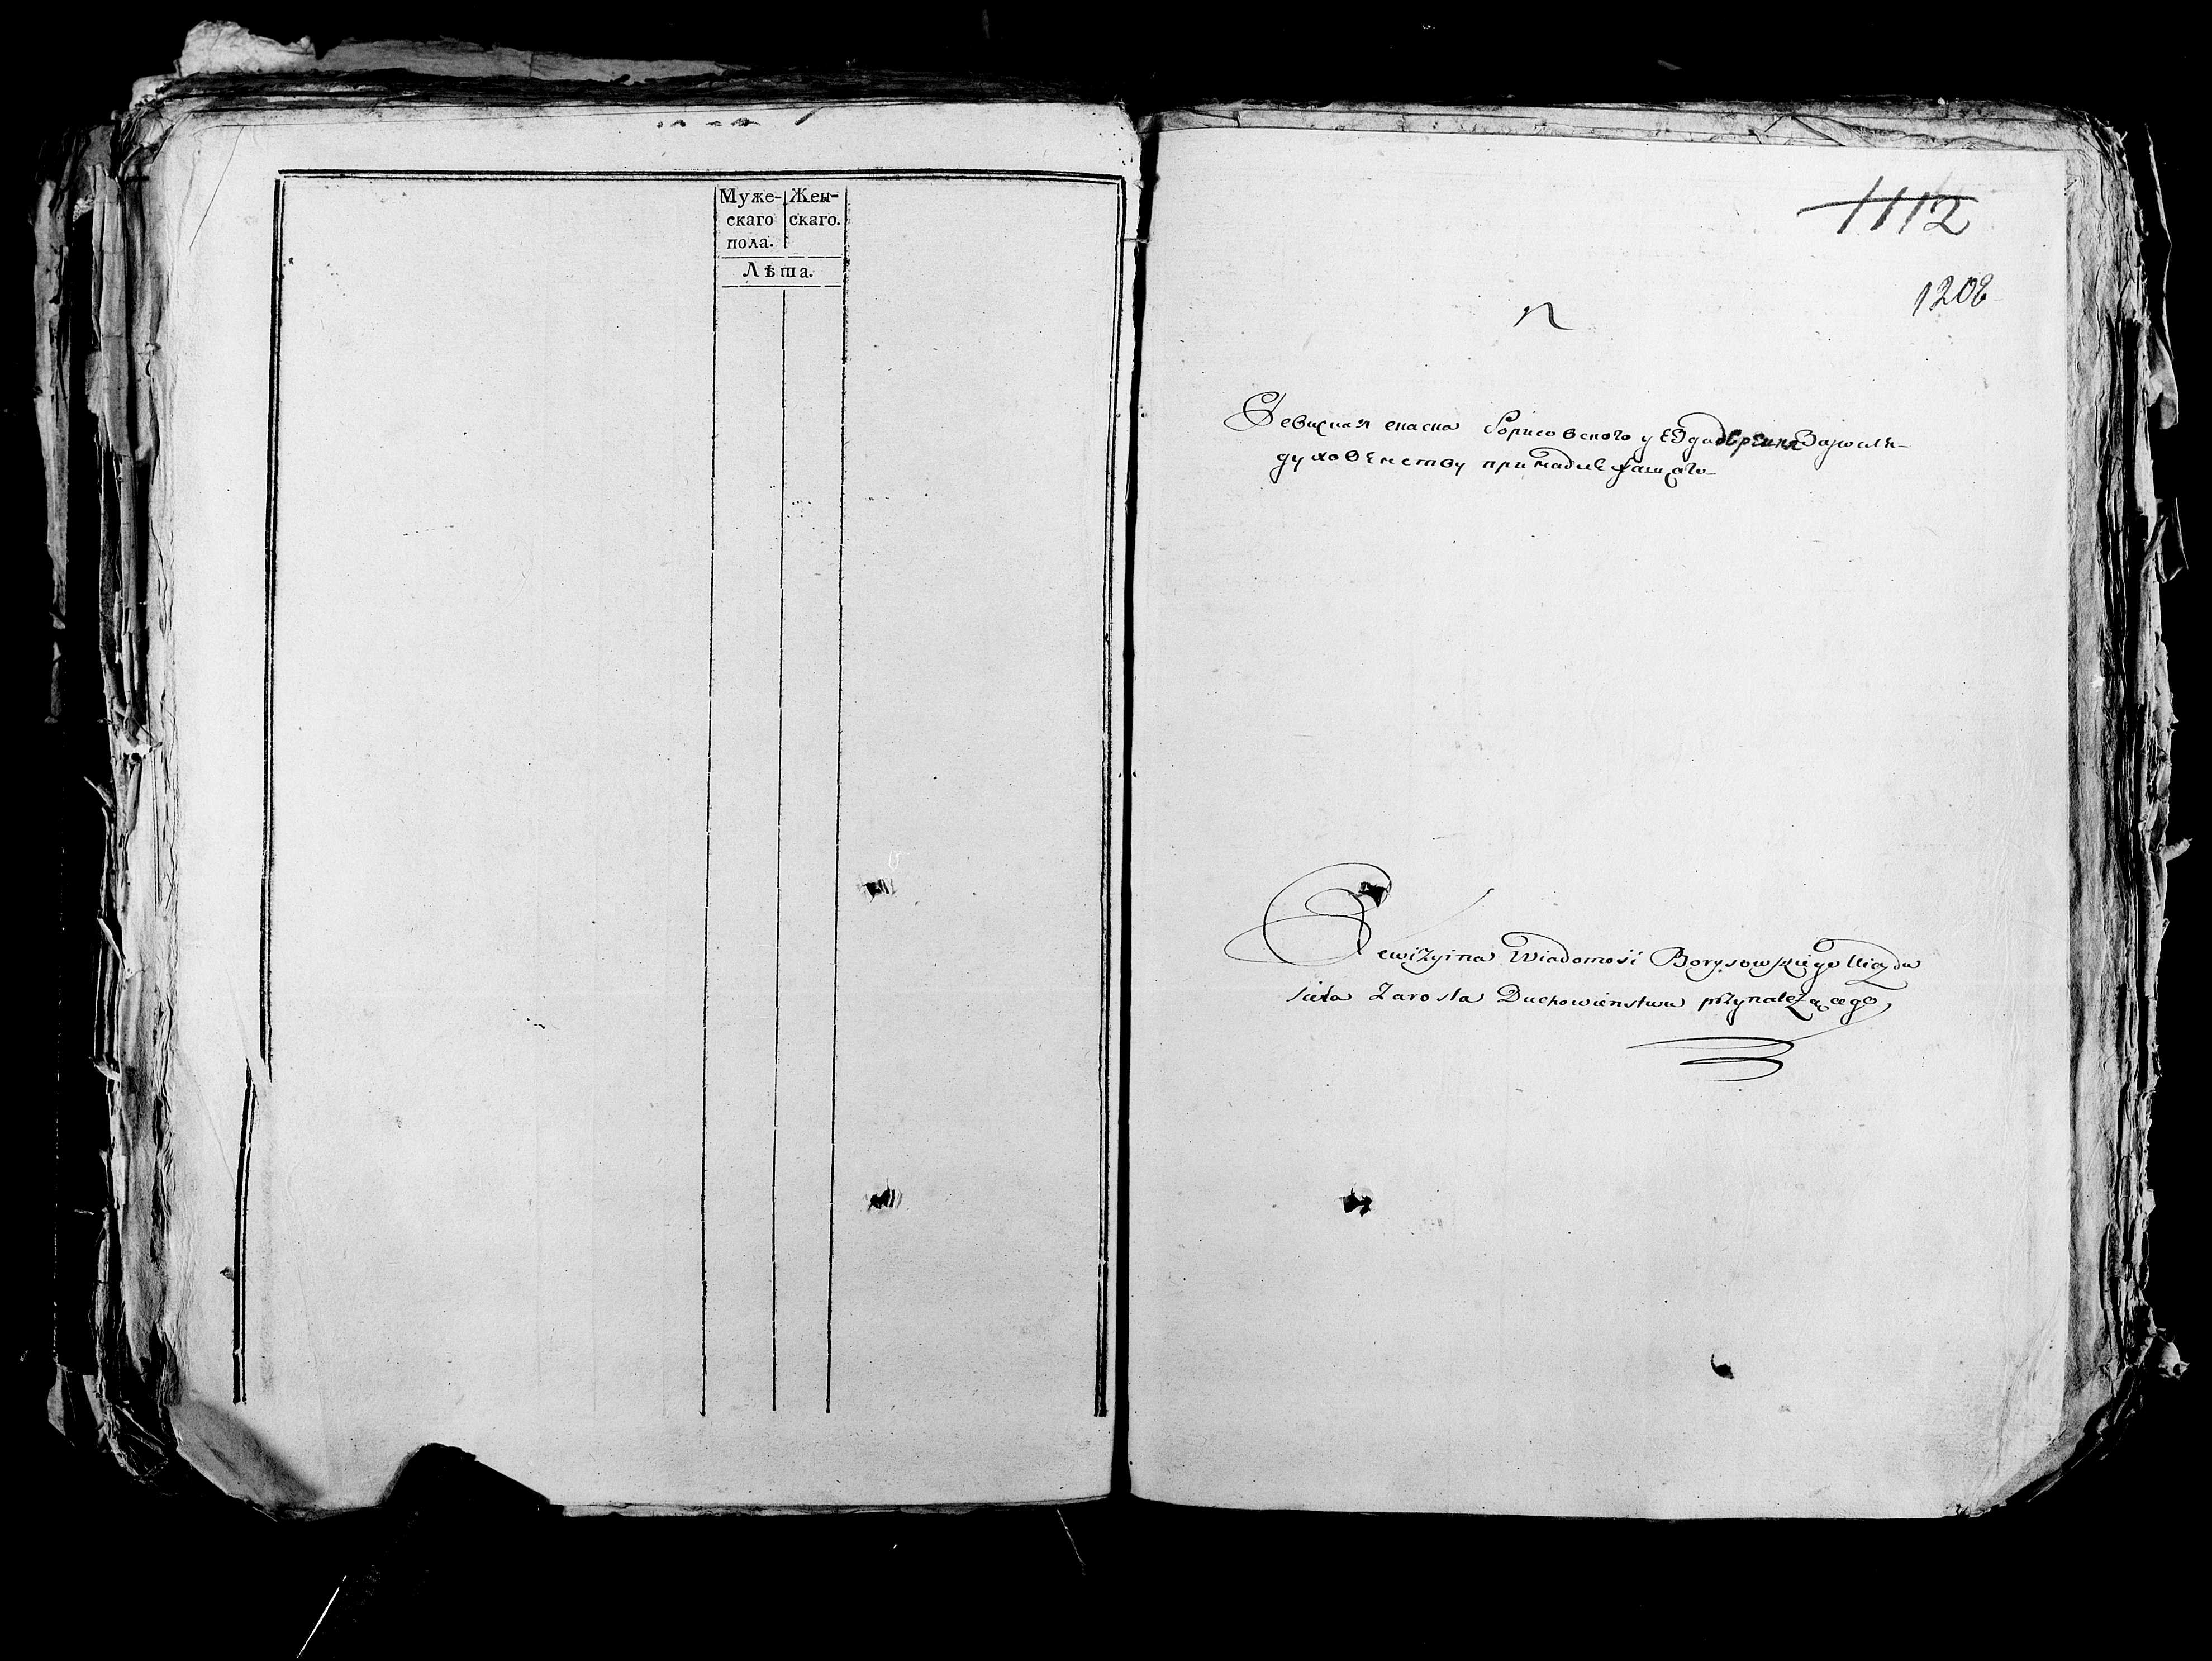 Муже- Жен-
скаго скаго.
пола.
Лѣта.
1112
1208
n
Ревизная скаска Борисовского уезда деревни
духовенству принадлежащаго
Rewizyina Wiadomość Borysowskiego Uiazdu
sieła Zarosla Duchowieństwu przynależącego